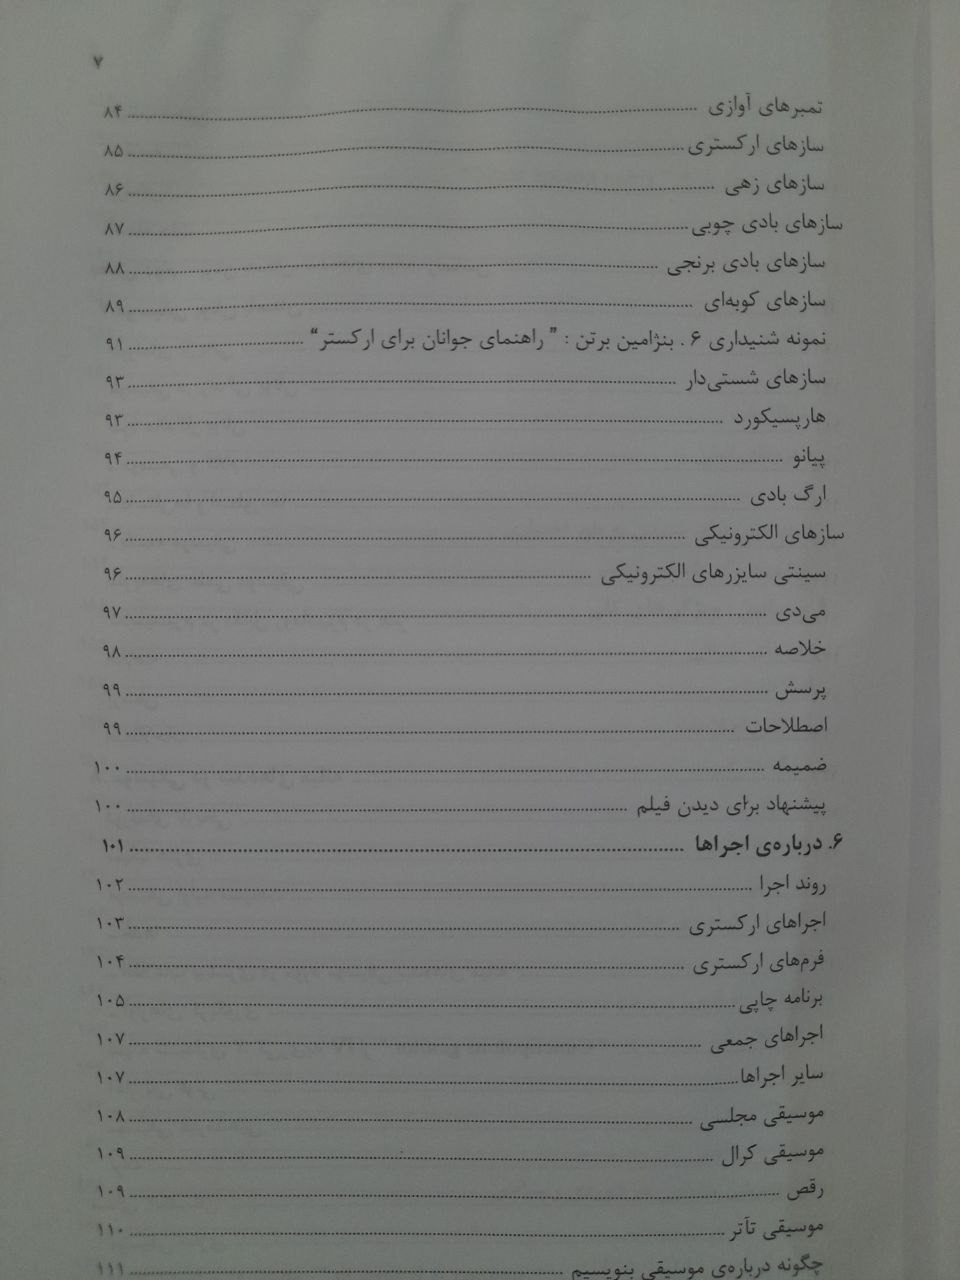 ۷
تمبرهای آوازی ........ ۸۴
سازهای ارکستری ........ ۸۵
سازهای زهی ........ ۸۶
سازهای بادی چوبی ........ ۸۷
سازهای بادی برنجی ........ ۸۸
سازهای کوبه‌ای ........ ۸۹
نمونه شنیداری ۶ . بنژامین برتن : ” راهنمای جوانان برای ارکستر“ ........ ۹۱
سازهای شستی‌دار ........ ۹۳
هارپسیکورد ........ ۹۳
پیانو ........ ۹۴
ارگ بادی ........ ۹۵
سازهای الکترونیکی ........ ۹۶
سینتی سایزرهای الکترونیکی ........ ۹۶
می‌دی ........ ۹۷
خلاصه ........ ۹۸
پرسش ........ ۹۹
اصطلاحات ........ ۹۹
ضمیمه ........ ۱۰۰
پیشنهاد برای دیدن فیلم ........ ۱۰۰
۶. درباره‌ی اجراها ........ ۱۰۱
روند اجرا ........ ۱۰۲
اجراهای ارکستری ........ ۱۰۳
فرم‌های ارکستری ........ ۱۰۴
برنامه چاپی ........ ۱۰۵
اجراهای جمعی ........ ۱۰۷
سایر اجراها ........ ۱۰۷
موسیقی مجلسی ........ ۱۰۸
موسیقی کرال ........ ۱۰۹
رقص ........ ۱۰۹
موسیقی تآتر ........ ۱۱۰
چگونه درباره‌ی موسیقی بنویسیم ........ ۱۱۱